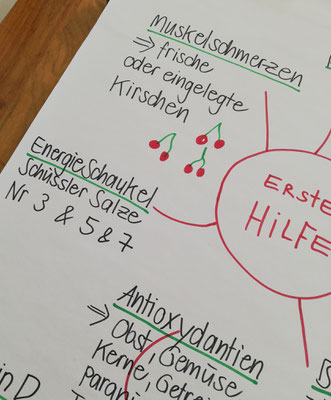 Muskelschmerzen
⇒ frische
oder eingelegte
Kirschen
Energieschaukel
Schüssler Salze
Nr 3 & 5 & 7
ERSTE
HiLFE
Antioxydantien
⇒ Obst, Gemüse
Kerne,
D